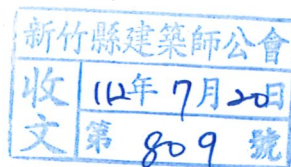 新竹縣建築師公會
收文
112年7月20日
第809號